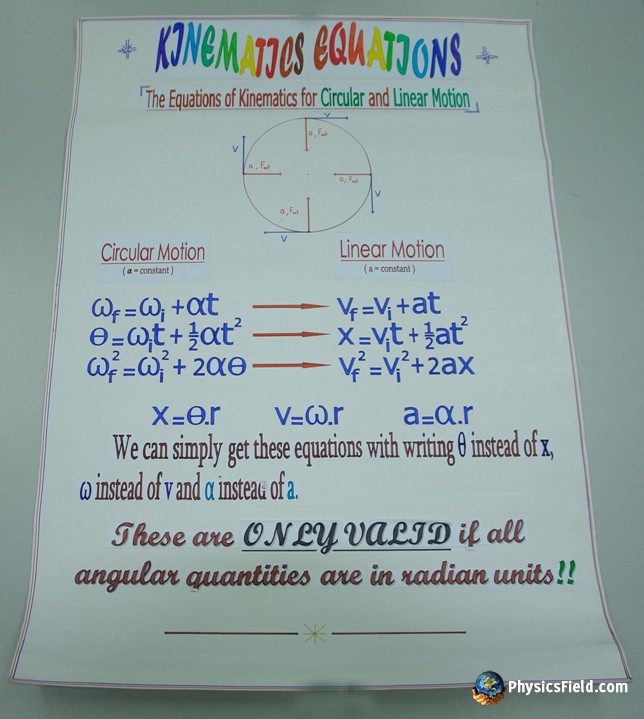 KINEMATICS EQUATIONS
The Equations of Kinematics for Circular and Linear Motion
V
a, Fnet
V
a, Fnet
a, Fnet
V
a, Fnet
V
Circular Motion
(α = constant)
Linear Motion
(a = constant)
ωf=ωi+αt
Vf=Vi+at
θ=ωit+½αt²
x=Vit+½at²
ωf²=ωi²+2αθ
Vf²=Vi²+2ax
x=θ.r v=ω.r a=α.r
We can simply get these equations with writing θ instead of x,
ω instead of v and α instead of a.
These are ONLY VALID if all
angular quantities are in radian units!!
PhysicsField.com